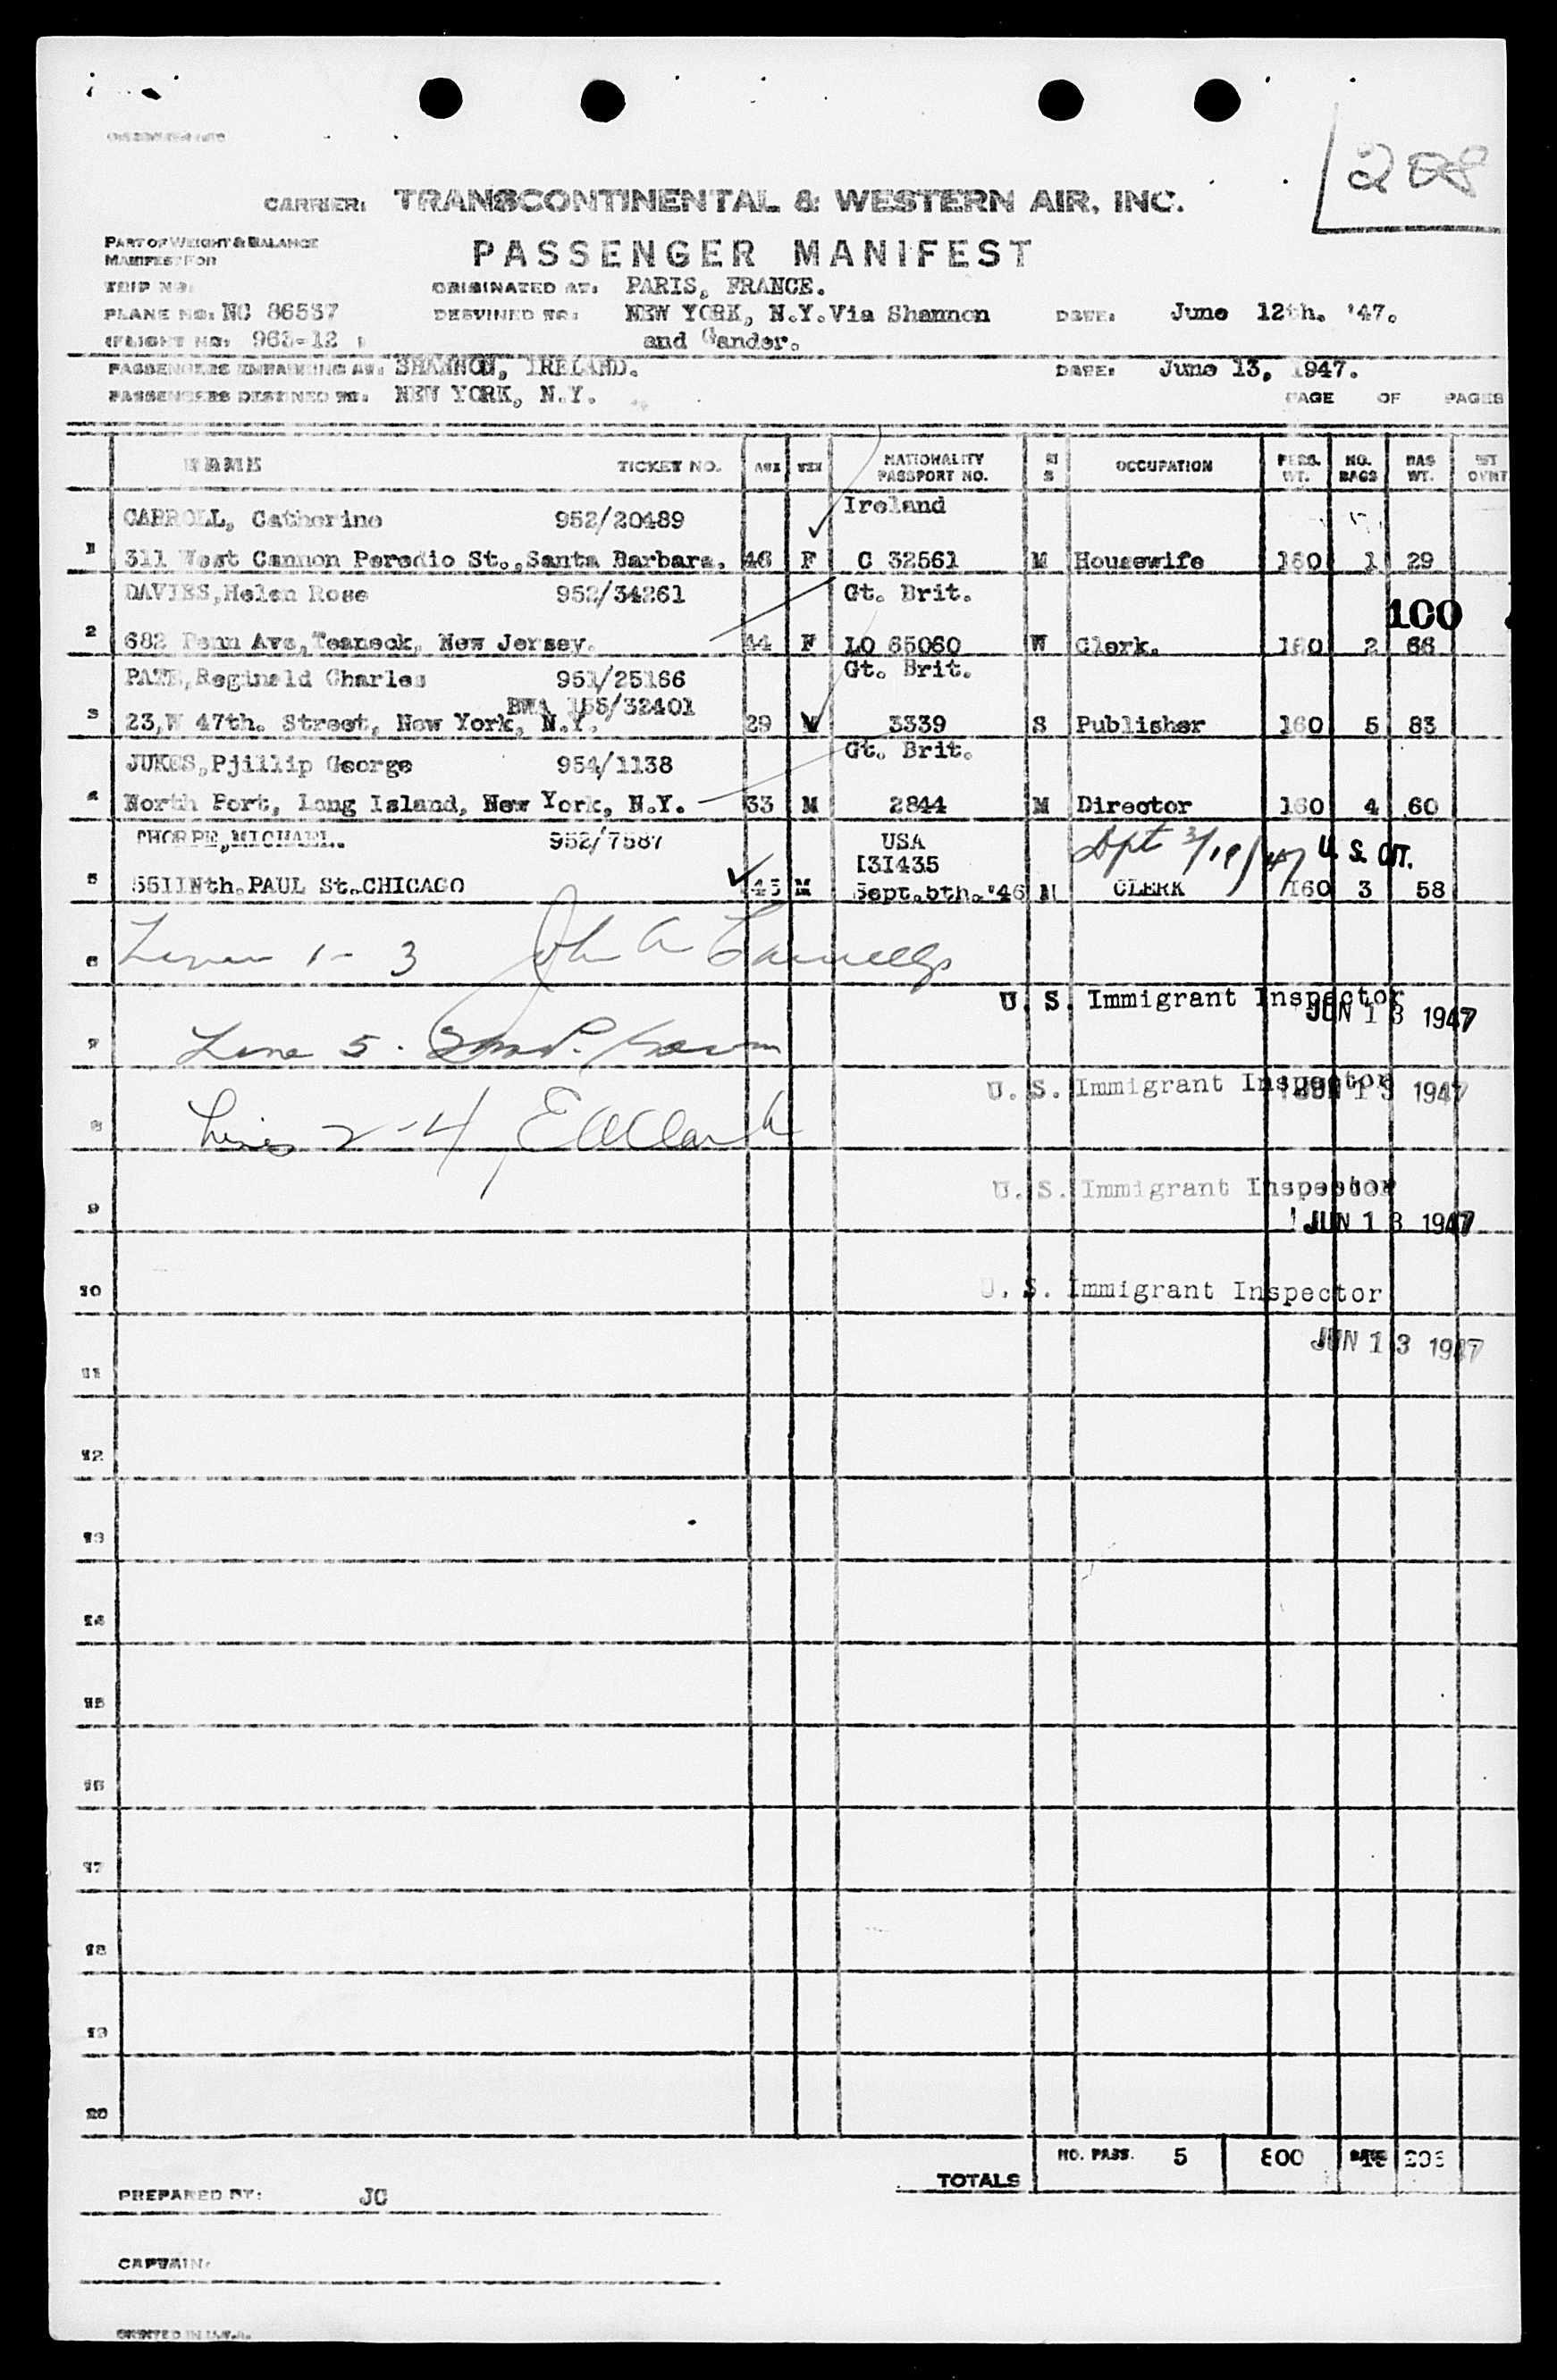 208
CARRIER: TRANSCONTINENTAL & WESTERN AIR, INC.
PART OF WEIGHT & BALANCE
MANIFEST FOR
PASSENGER MANIFEST
TRIP NO: ORIGINATED AT: PARIS, FRANCE.
PLANE NO: NC 86537 DESTINED TO: NEW YORK, N.Y.Via Shannon DATE: June 12th. '47.
FLIGHT NO: 963-12 and Gander.
PASSENGERS EMBARKING AT: SHANNON, IRELAND. DATE: June 13, 1947.
PASSENGERS DESTINED TO: NEW YORK, N.Y. PAGE OF PAGES
NAME TICKET NO. AGE SEX NATIONALITY PASSPORT NO. M S OCCUPATION PERS. WT. NO. BAGS BAG WT.
CARROLL, Catherine 952/20489 Ireland
1 311 West Cannon Peredio St.,Santa Barbara. 46 F C 32561 M Housewife 160 1 29
DAVIES,Helen Rose 952/34261 Gt. Brit.
100
2 682 Penn Ave,Teaneck, New Jersey. 44 F LO 65060 W Clerk. 160 2 66
PATE,Reginald Charles 951/25166 Gt. Brit.
BWA 155/32401
3 23,W 47th. Street, New York, N.Y. 29 3339 S Publisher 160 5 83
JUKES,Pjillip George 954/1138 Gt. Brit.
4 North Port, Long Island, New York, N.Y. 33 M 2844 M Director 160 4 60
THORPE,MICHAEL. 952/7587 USA
I3I435 Dpt 3/19/47 U. S. CIT.
5 55IINth.PAUL St.CHICAGO 45 M Sept.5th.'46 M CLERK 160 3 58
6 Lines 1-3 John A
U. S. Immigrant Inspector
JUN 13 1947
7 Line 5.
U. S. Immigrant Inspector
JUN 13 1947
8 Lines 2-4 E A Clark
U. S. Immigrant Inspector
9 JUN 13 1947
10 U. S. Immigrant Inspector
JUN 13 1947
11
12
13
14
15
16
17
18
19
20
TOTALS NO. PASS. 5 800
PREPARED BY: JC
CAPTAIN:
PRINTED IN U.S.A.